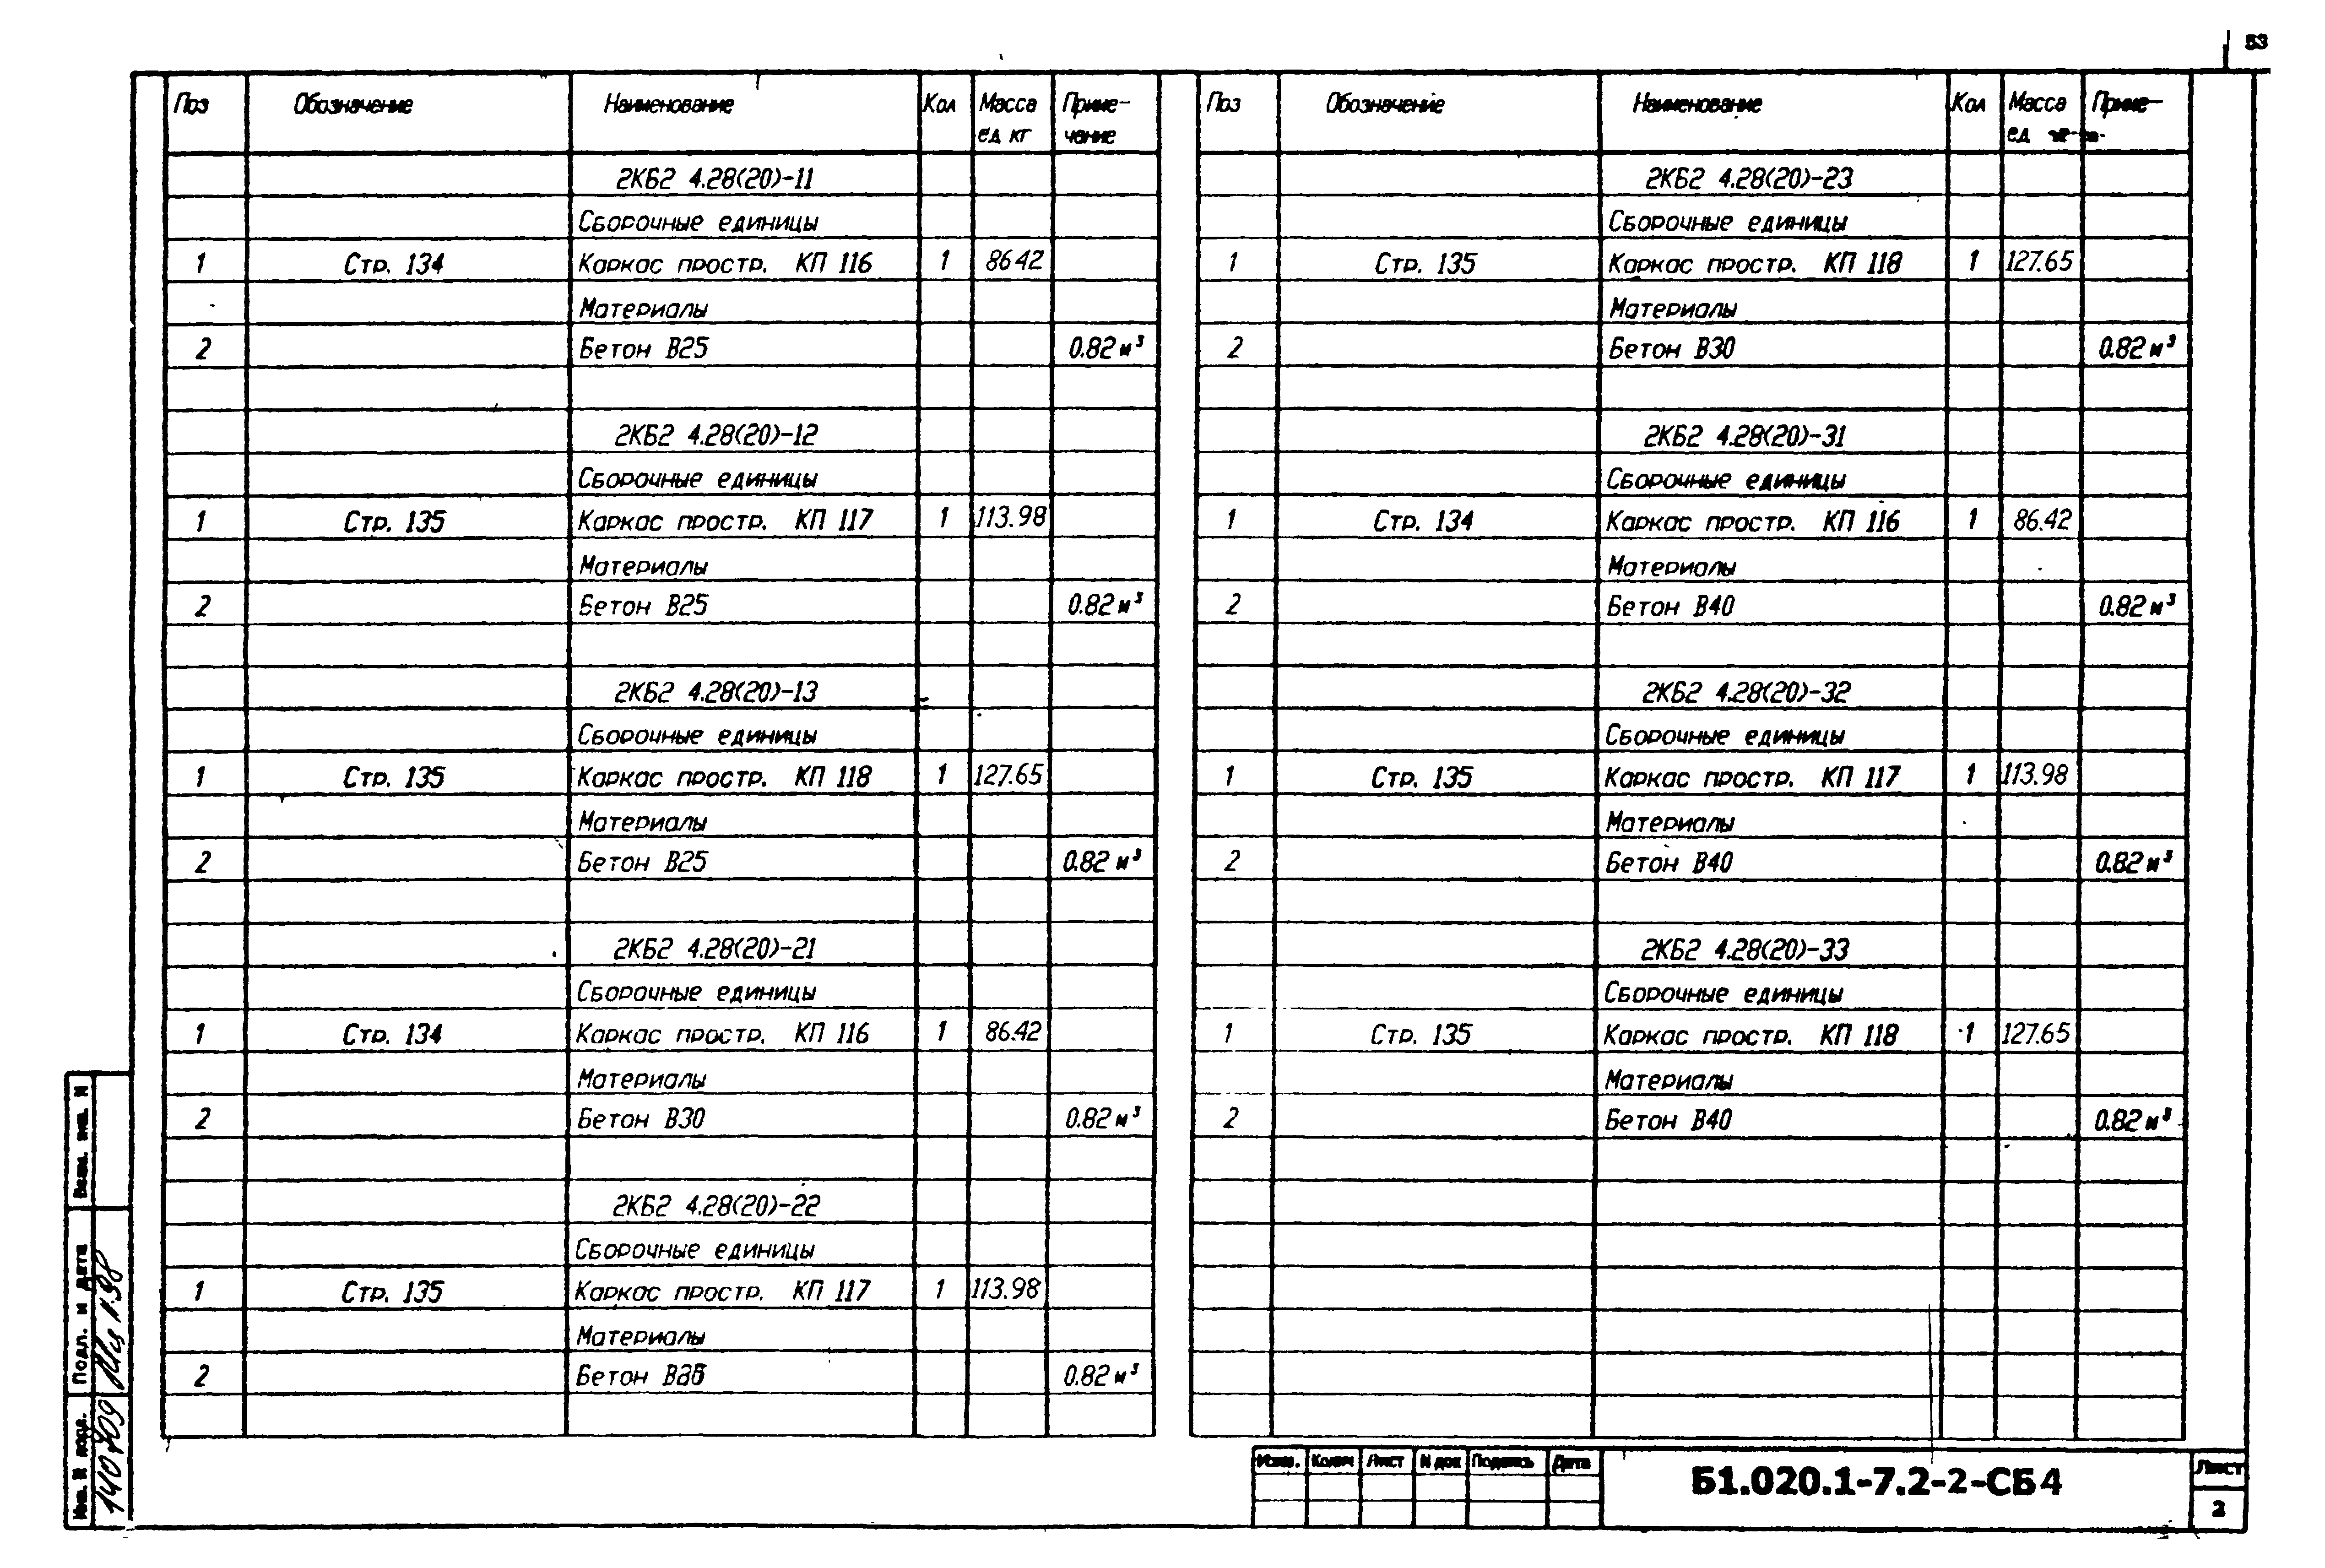 53
Поз Обозначение Наименование Кол Масса ед кг Приме-чание
2КБ2 4.28(20)-11
Сборочные единицы
1 Стр. 134 Каркас простр. КП 116 1 86.42
Материалы
2 Бетон В25 0.82 м³
2КБ2 4.28(20)-12
Сборочные единицы
1 Стр. 135 Каркас простр. КП 117 1 113.98
Материалы
2 Бетон В25 0.82 м³
2КБ2 4.28(20)-13
Сборочные единицы
1 Стр. 135 Каркас простр. КП 118 1 127.65
Материалы
2 Бетон В25 0.82 м³
2КБ2 4.28(20)-21
Сборочные единицы
1 Стр. 134 Каркас простр. КП 116 1 86.42
Материалы
2 Бетон В30 0.82 м³
2КБ2 4.28(20)-22
Сборочные единицы
1 Стр. 135 Каркас простр. КП 117 1 113.98
Материалы
2 Бетон 0.82 м³
Поз Обозначение Наименование Кол Масса ед Приме-
2КБ2 4.28(20)-23
Сборочные единицы
1 Стр. 135 Каркас простр. КП 118 1 127.65
Материалы
2 Бетон В30 0.82 м³
2КБ2 4.28(20)-31
Сборочные единицы
1 Стр. 134 Каркас простр. КП 116 1 86.42
Материалы
2 Бетон В40 0.82 м³
2КБ2 4.28(20)-32
Сборочные единицы
1 Стр. 135 Каркас простр. КП 117 1 113.98
Материалы
2 Бетон В40 0.82 м³
2КБ2 4.28(20)-33
Сборочные единицы
1 Стр. 135 Каркас простр. КП 118 1 127.65
Материалы
2 Бетон В40 0.82 м³
Взам. инв. N
Подп. и дата
Инв. N подл.
Изм. Колич Лист N док Подпись Дата
Б1.020.1-7.2-2-СБ4
Лист
2